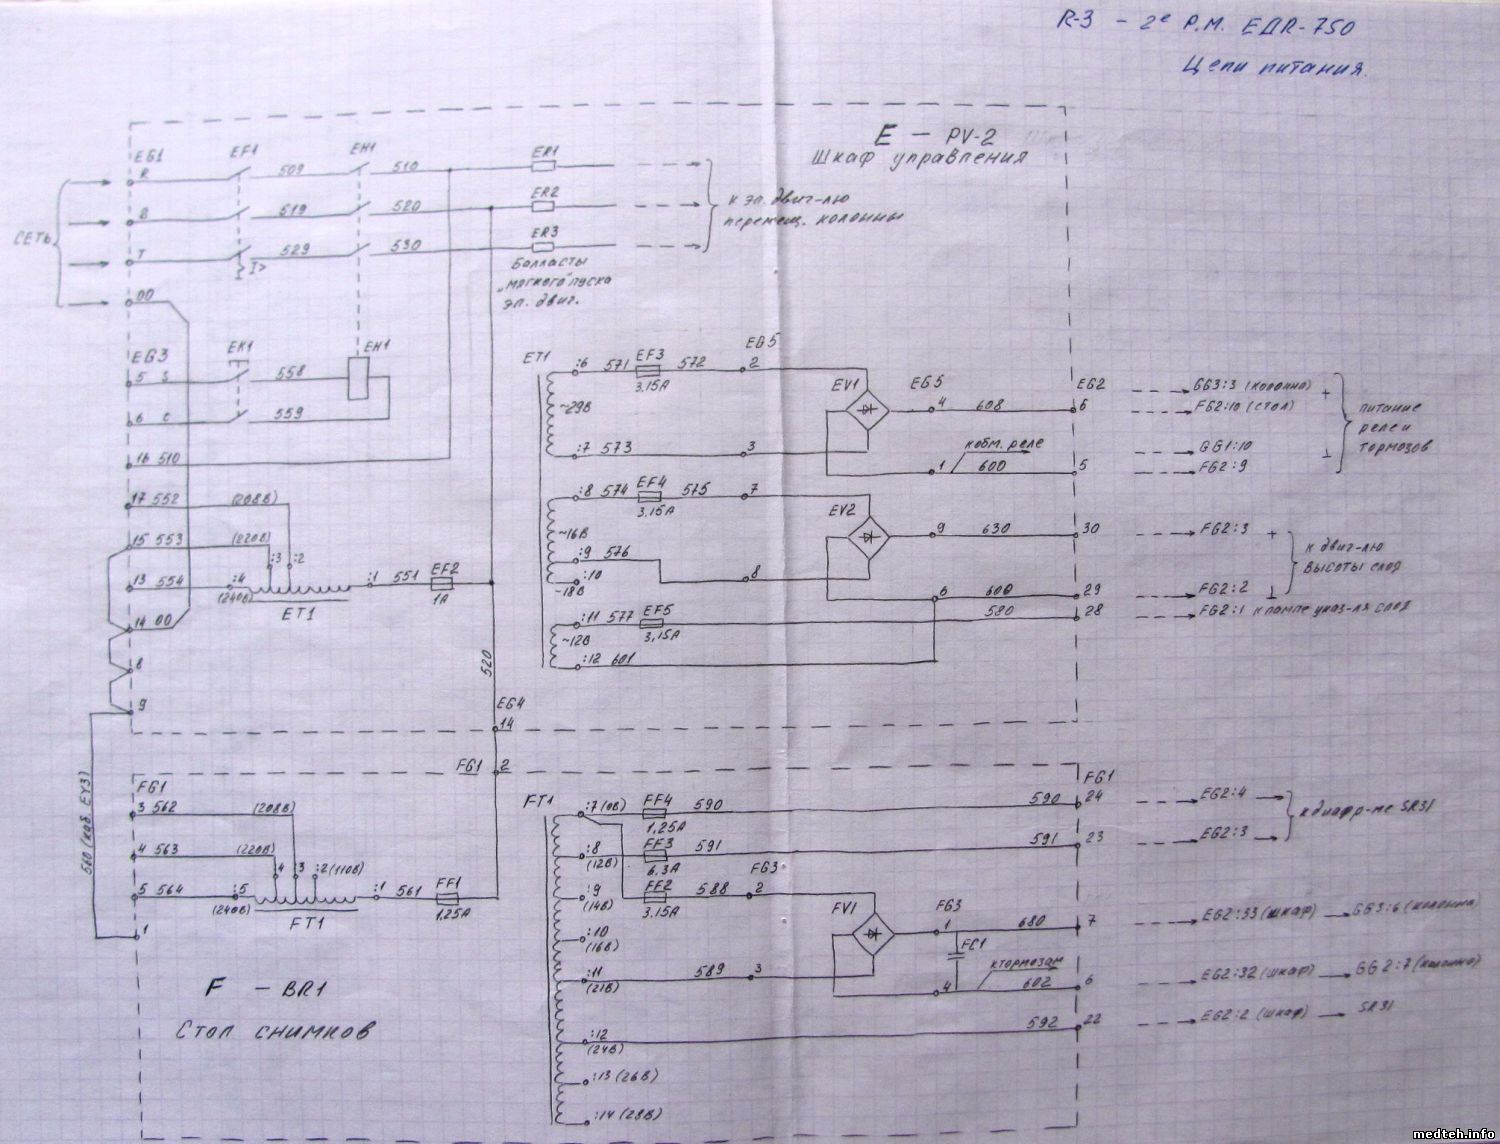 R-3 - 2е Р.М. ЕДR-750
Цепи питания.
E - PV-2
Шкаф управления
EG1
EF1
EH1
R
509
510
ER1
S
519
520
ER2
T
529
530
ER3
I>
СЕТЬ
00
к эл. двиг-лю
перемещ. колонны
Балласты
"мягкого" пуска
эл. двиг.
EG3
EK1
EH1
5 S
558
6 C
559
16 510
17 552
(208В)
15 553
(220В)
:3
:2
13 554
:4
(240В)
ET1
:1
551
EF2
1А
14 00
8
9
520
EG4
14
560 (каб. EY3)
ET1
:6 571
EF3
572
3.15А
EG5
2
~29В
:7 573
3
EV1
EG5
4
608
EG2
6
к обм. реле
1
600
5
GG3:3 (колонна)
+
FG2:10 (стол)
GG1:10
⊥
FG2:9
питание
реле и
тормозов
:8 574
EF4
575
7
3.15А
~16В
:9 576
:10
~18В
8
EV2
9
630
30
6
600
29
580
28
FG2:3
+
FG2:2
⊥
FG2:1 к лампе указ-ля слоя
к двиг-лю
высоты слоя
:11 577
EF5
3,15А
~12В
:12 601
FG1
2
FG1
3 562
(208В)
4 563
(220В)
4
3
:2 (110В)
5 564
:5
(240В)
FT1
:1
561
FF1
1.25А
1
F - BR1
Стол снимков
FT1
:7 (0В)
FF4
590
1,25А
590
FG1
24
EG2:4
:8
(12В)
FF3
591
6.3А
591
23
EG2:3
к диафр-ме SR31
:9
(14В)
FF2
588
3.15А
FG3
2
:10
(16В)
:11
(21В)
589
3
FV1
FG3
1
680
7
FC1
к тормозам
4
602
6
EG2:33 (шкаф)
GG3:6 (колонна)
EG2:32 (шкаф)
GG2:7 (колонна)
:12
(24В)
592
22
EG2:2 (шкаф)
SR31
:13 (26В)
:14 (28В)
medteh.info